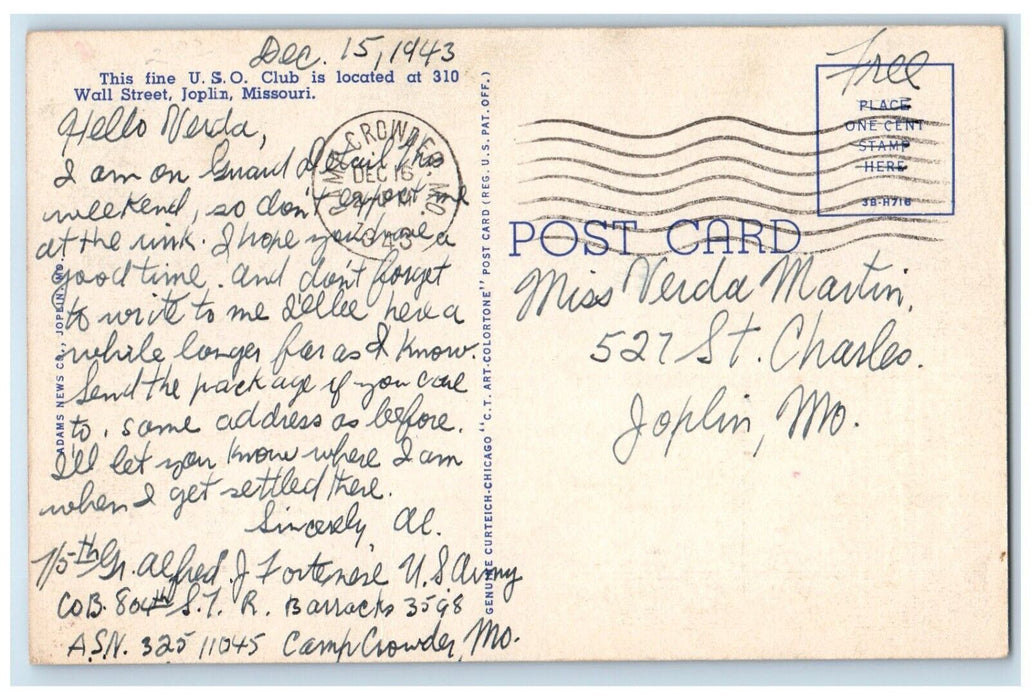 Dec. 15, 1943
This fine U. S. O. Club is located at 310
Wall Street, Joplin, Missouri.
Hello Verda,
I am on Guard Detail this
weekend, so don't expect me
at the rink. I hope you have a
good time. and don't forget
to write to me I'll be here a
while longer far as I know.
Send the package if you care
to, same address as before.
I'll let you know where I am
when I get settled there.
Sincerely, Al.
T/5th Gr. Alfred J U.S Army
Co B. 804th S. T. R. Barracks 3598
A.S.N. 32511045 Camp Crowder, Mo.
ADAMS NEWS CO., JOPLIN, MO.
GENUINE CURTEICH-CHICAGO "C. T. ART-COLORTONE" POST CARD (REG. U. S. PAT. OFF.)
CAMP CROWDER, MO.
DEC 16
1943
Free
PLACE
ONE CENT
STAMP
HERE
3B-H716
POST CARD
Miss Verda Martin,
527 St. Charles.
Joplin, Mo.